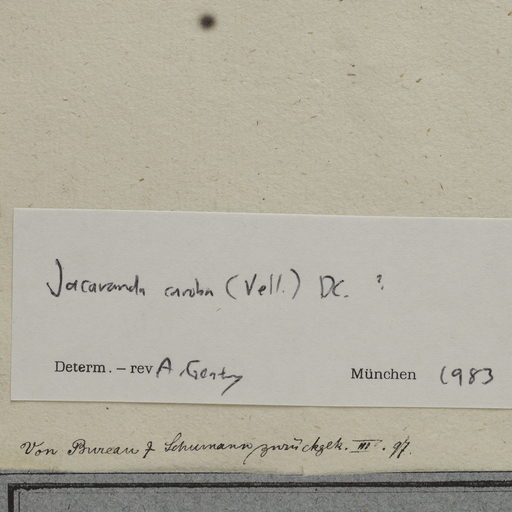 Jacaranda caroba (Vell.) DC. ?
Determ. – rev A. Gentry München 1983
Von Bureau & Schumann zurückgek. III. 97.